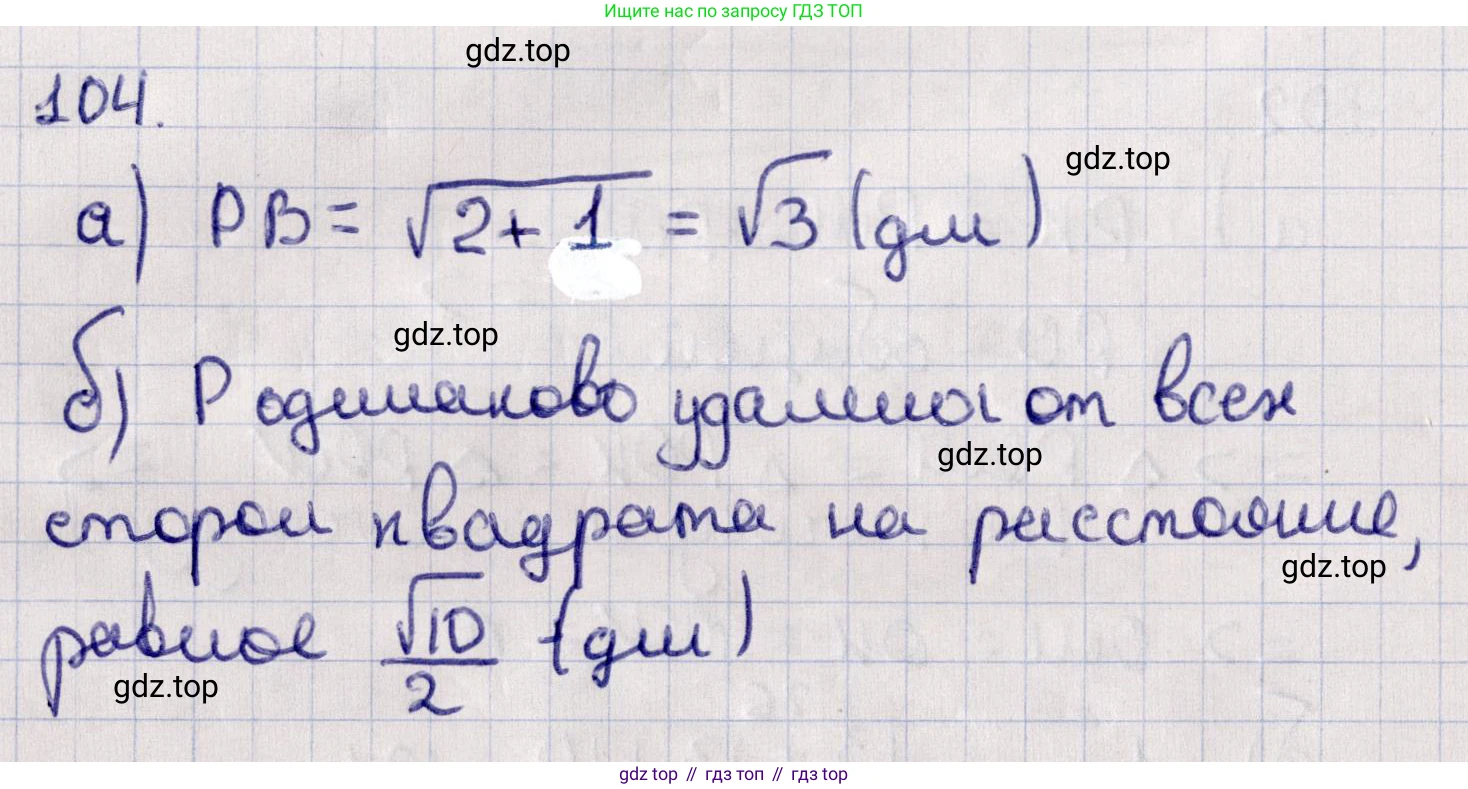 Ищите нас по запросу ГДЗ ТОП
gdz.top
104.
gdz.top
а) PB = √(2+1) = √3 (дм)
gdz.top
б) P одинаково удалены от всех
gdz.top
сторон квадрата на расстояние,
gdz.top
равное √10/2 (дм)
gdz.top
gdz top // гдз топ // гдз top